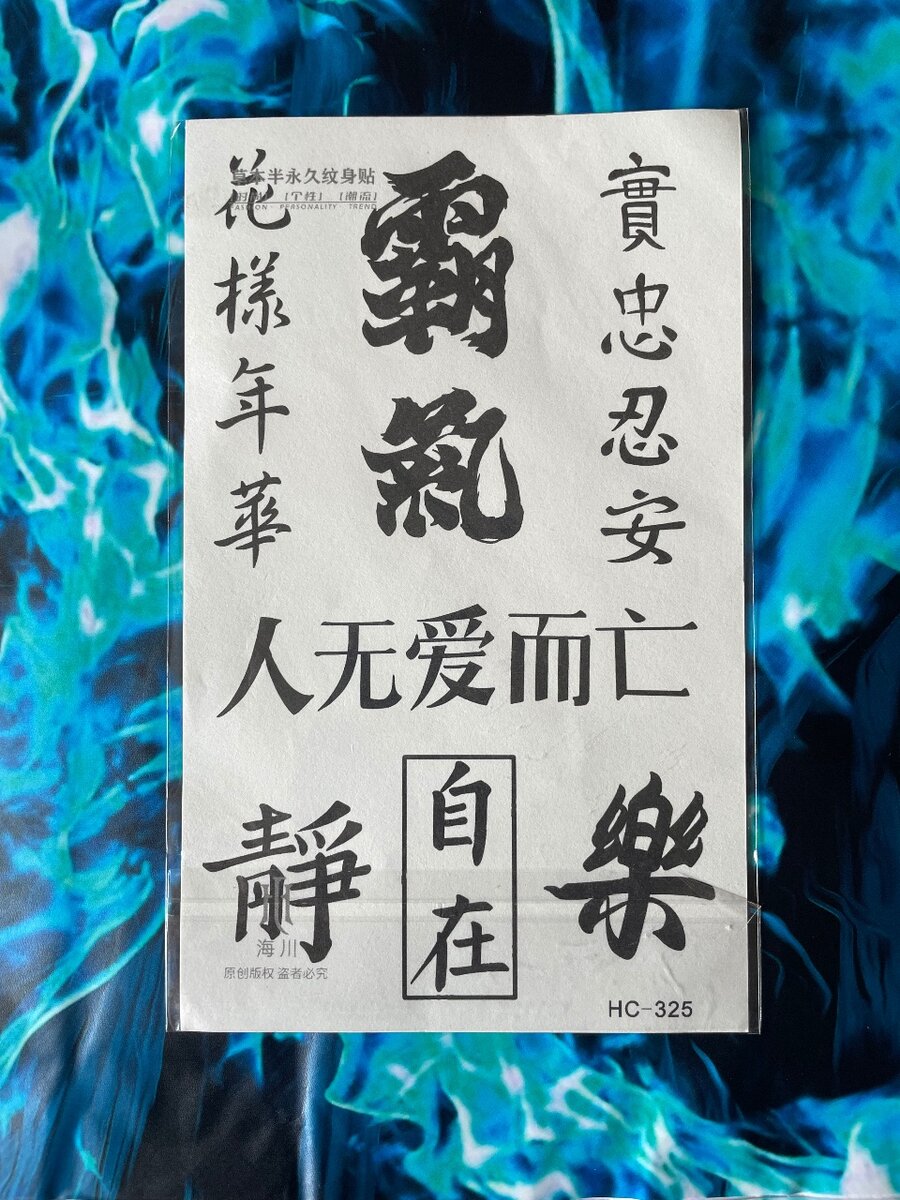 草本半永久纹身贴
【时尚】 【个性】 【潮流】
FASHION · PERSONALITY · TREND
花樣年華
霸氣
實忠忍安
人无爱而亡
靜
自在
樂
海川
原创版权 盗者必究
HC-325